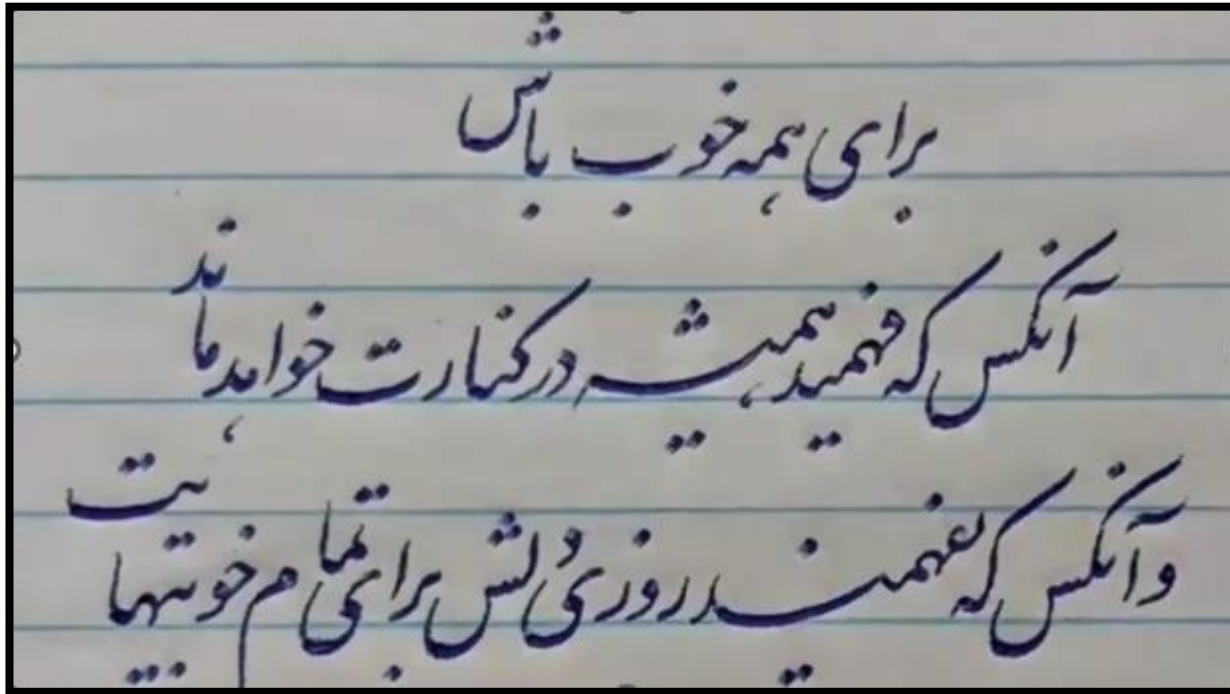 برای همه خوب باش
آنکس که فهمید همیشه در کنارت خواهد ماند
و آنکس که نفهمید روزی دلش برای تمام خوبیهایت